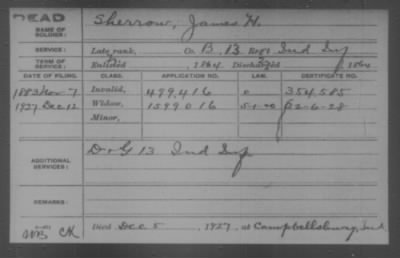 DEAD
NAME OF SOLDIER: Sherrow, James H.
SERVICE: Late rank, Co. B, 13 Reg't Ind Inf
TERM OF SERVICE: Enlisted , 1864 Discharged , 1864
DATE OF FILING. CLASS. APPLICATION NO. LAW. CERTIFICATE NO.
1883 Nov 7 Invalid, 499.416 354.585
1927 Dec 12 Widow, 1599016 2-6-28
Minor,
ADDITIONAL SERVICES: D+G 13 Ind Inf
REMARKS:
Died Dec 5, 1927, at Campbellsburg, Ind.